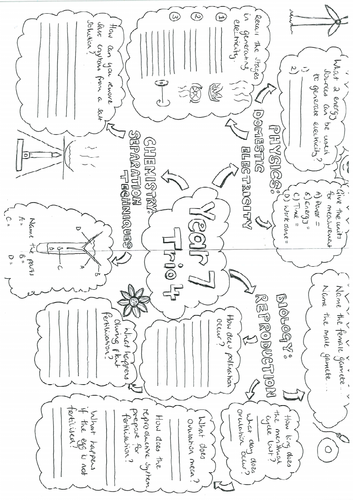 Year 7
Trio 4
PHYSICS:
DOMESTIC
ELECTRICITY
What 2 energy
sources can be used
to generate electricity?
1)
2)
Give the units
for measuring
A) Power =
B) Energy =
C) Time =
D) Work done =
Recall the stages
in generating
electricity
1
2
3
CHEMISTRY:
SEPARATION
TECHNIQUES
How can you remove
salt crystals from a salt
solution?
Name the parts
A=
B=
C=
D=
A
B
C
D
BIOLOGY:
REPRODUCTION
Name the female gamete
Name the male gamete
How long does
the menstrual
cycle last?
What day does
ovulation occur?
How does pollination
occur?
What happens
during plant
fertilisation?
What does
Ovulation mean?
How does the
reproductive system
prepare for
fertilisation?
What happens
if the egg is not
fertilised